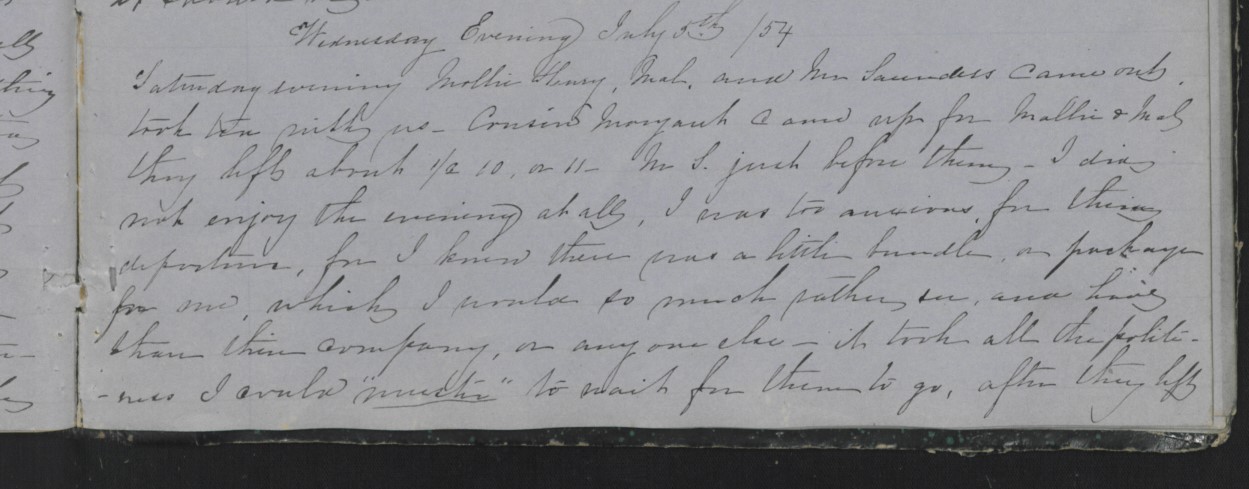 Wednesday Evening July 5th /54
Saturday evening Mollie Hury, Mal, and Mr Saunders came out,
took tea with us - Cousin Morgant came up for Mollie & Mal
they left about 1/2 10, or 11 - Mr S. just before them - I did
not enjoy the evening at all, I was too anxious, for their
departure, for I knew there was a little bundle, or package
for me, which I would so much rather see, and have
than their company, or any one else - it took all the polite-
-ness I could "muster" to wait for them to go, after they left